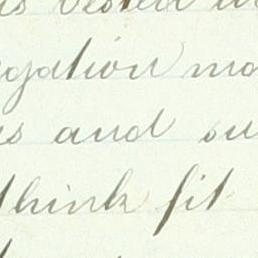 as vested
gation ma
and su
think fit